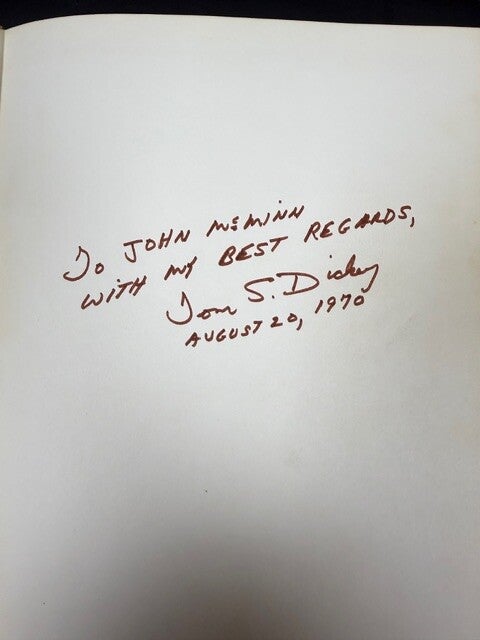 To JOHN McMINN
WITH MY BEST REGARDS,
Tom S. Dickey
AUGUST 20, 1970